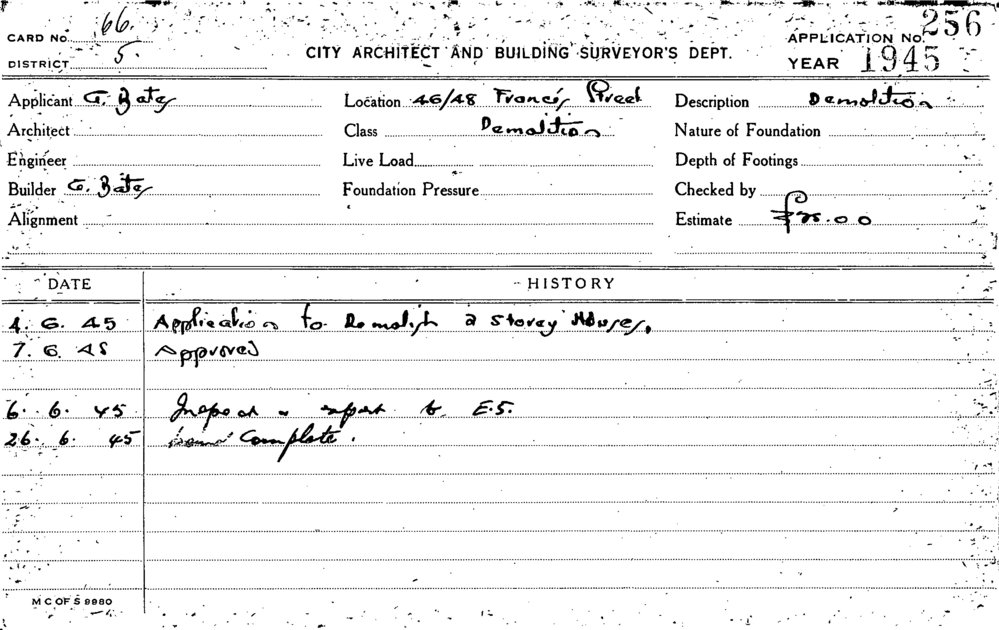 CARD No. 66.
DISTRICT 5.
CITY ARCHITECT AND BUILDING SURVEYOR'S DEPT.
APPLICATION No. 256
YEAR 1945
Applicant G. Bates Location 46/48 Francis Street Description Demolition
Architect Class Demolition Nature of Foundation
Engineer Live Load Depth of Footings
Builder G. Bates Foundation Pressure Checked by
Alignment Estimate
DATE HISTORY
4. 6. 45 Application to Demolish 2 Storey Houses.
7. 6. 45 Approved
6. 6. 45 Inspect & report to E.S.
26. 6. 45 Complete.
M C OF S 9980